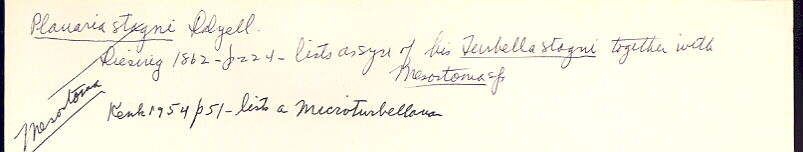 Planaria stagni Dalyell.
Diesing 1862 - p224 - lists as syn of his Turbella stagni together with
Mesostoma sp
Mesostoma
Kenk 1954 p51 - lists a Microturbellaria